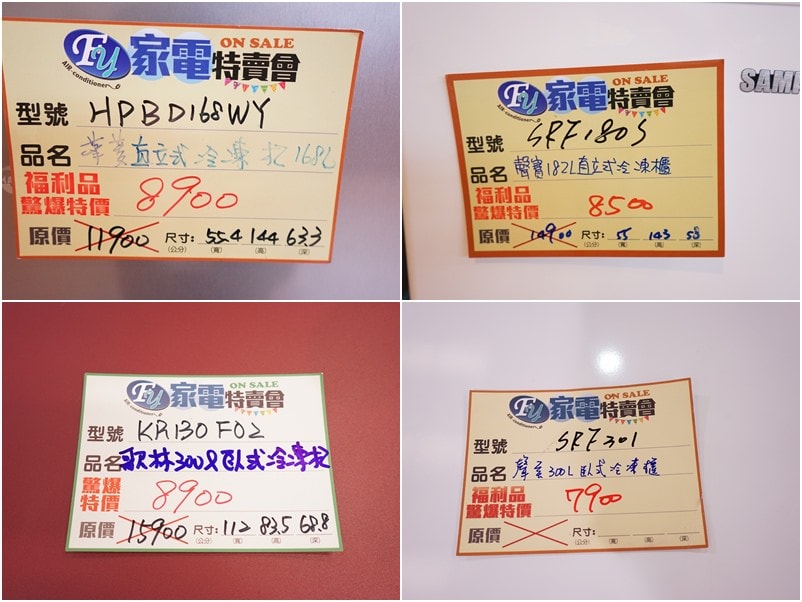 Fy 家電特賣會 ON SALE
AIR-conditioner
型號 HPBD168WY
品名 華菱直立式冷凍櫃168L
福利品
驚爆特價 8900
原價 11900 尺寸: 55.4 144 63.3
(公分) (寬) (高) (深)
SAMP
Fy 家電特賣會 ON SALE
AIR-conditioner
型號 SRF180S
品名 聲寶182L直立式冷凍櫃
福利品
驚爆特價 8500
原價 14900 尺寸: 55 143 58
(公分) (寬) (高) (深)
Fy 家電特賣會 ON SALE
AIR-conditioner
型號 KR130F02
品名 歌林300L臥式冷凍櫃
驚爆
特價 8900
原價 15900 尺寸: 112 83.5 68.8
(公分) (寬) (高) (深)
Fy 家電特賣會 ON SALE
AIR-conditioner
型號 SRF301
品名 聲寶300L臥式冷凍櫃
福利品
驚爆特價 7900
原價 尺寸:
(公分) (寬) (高) (深)